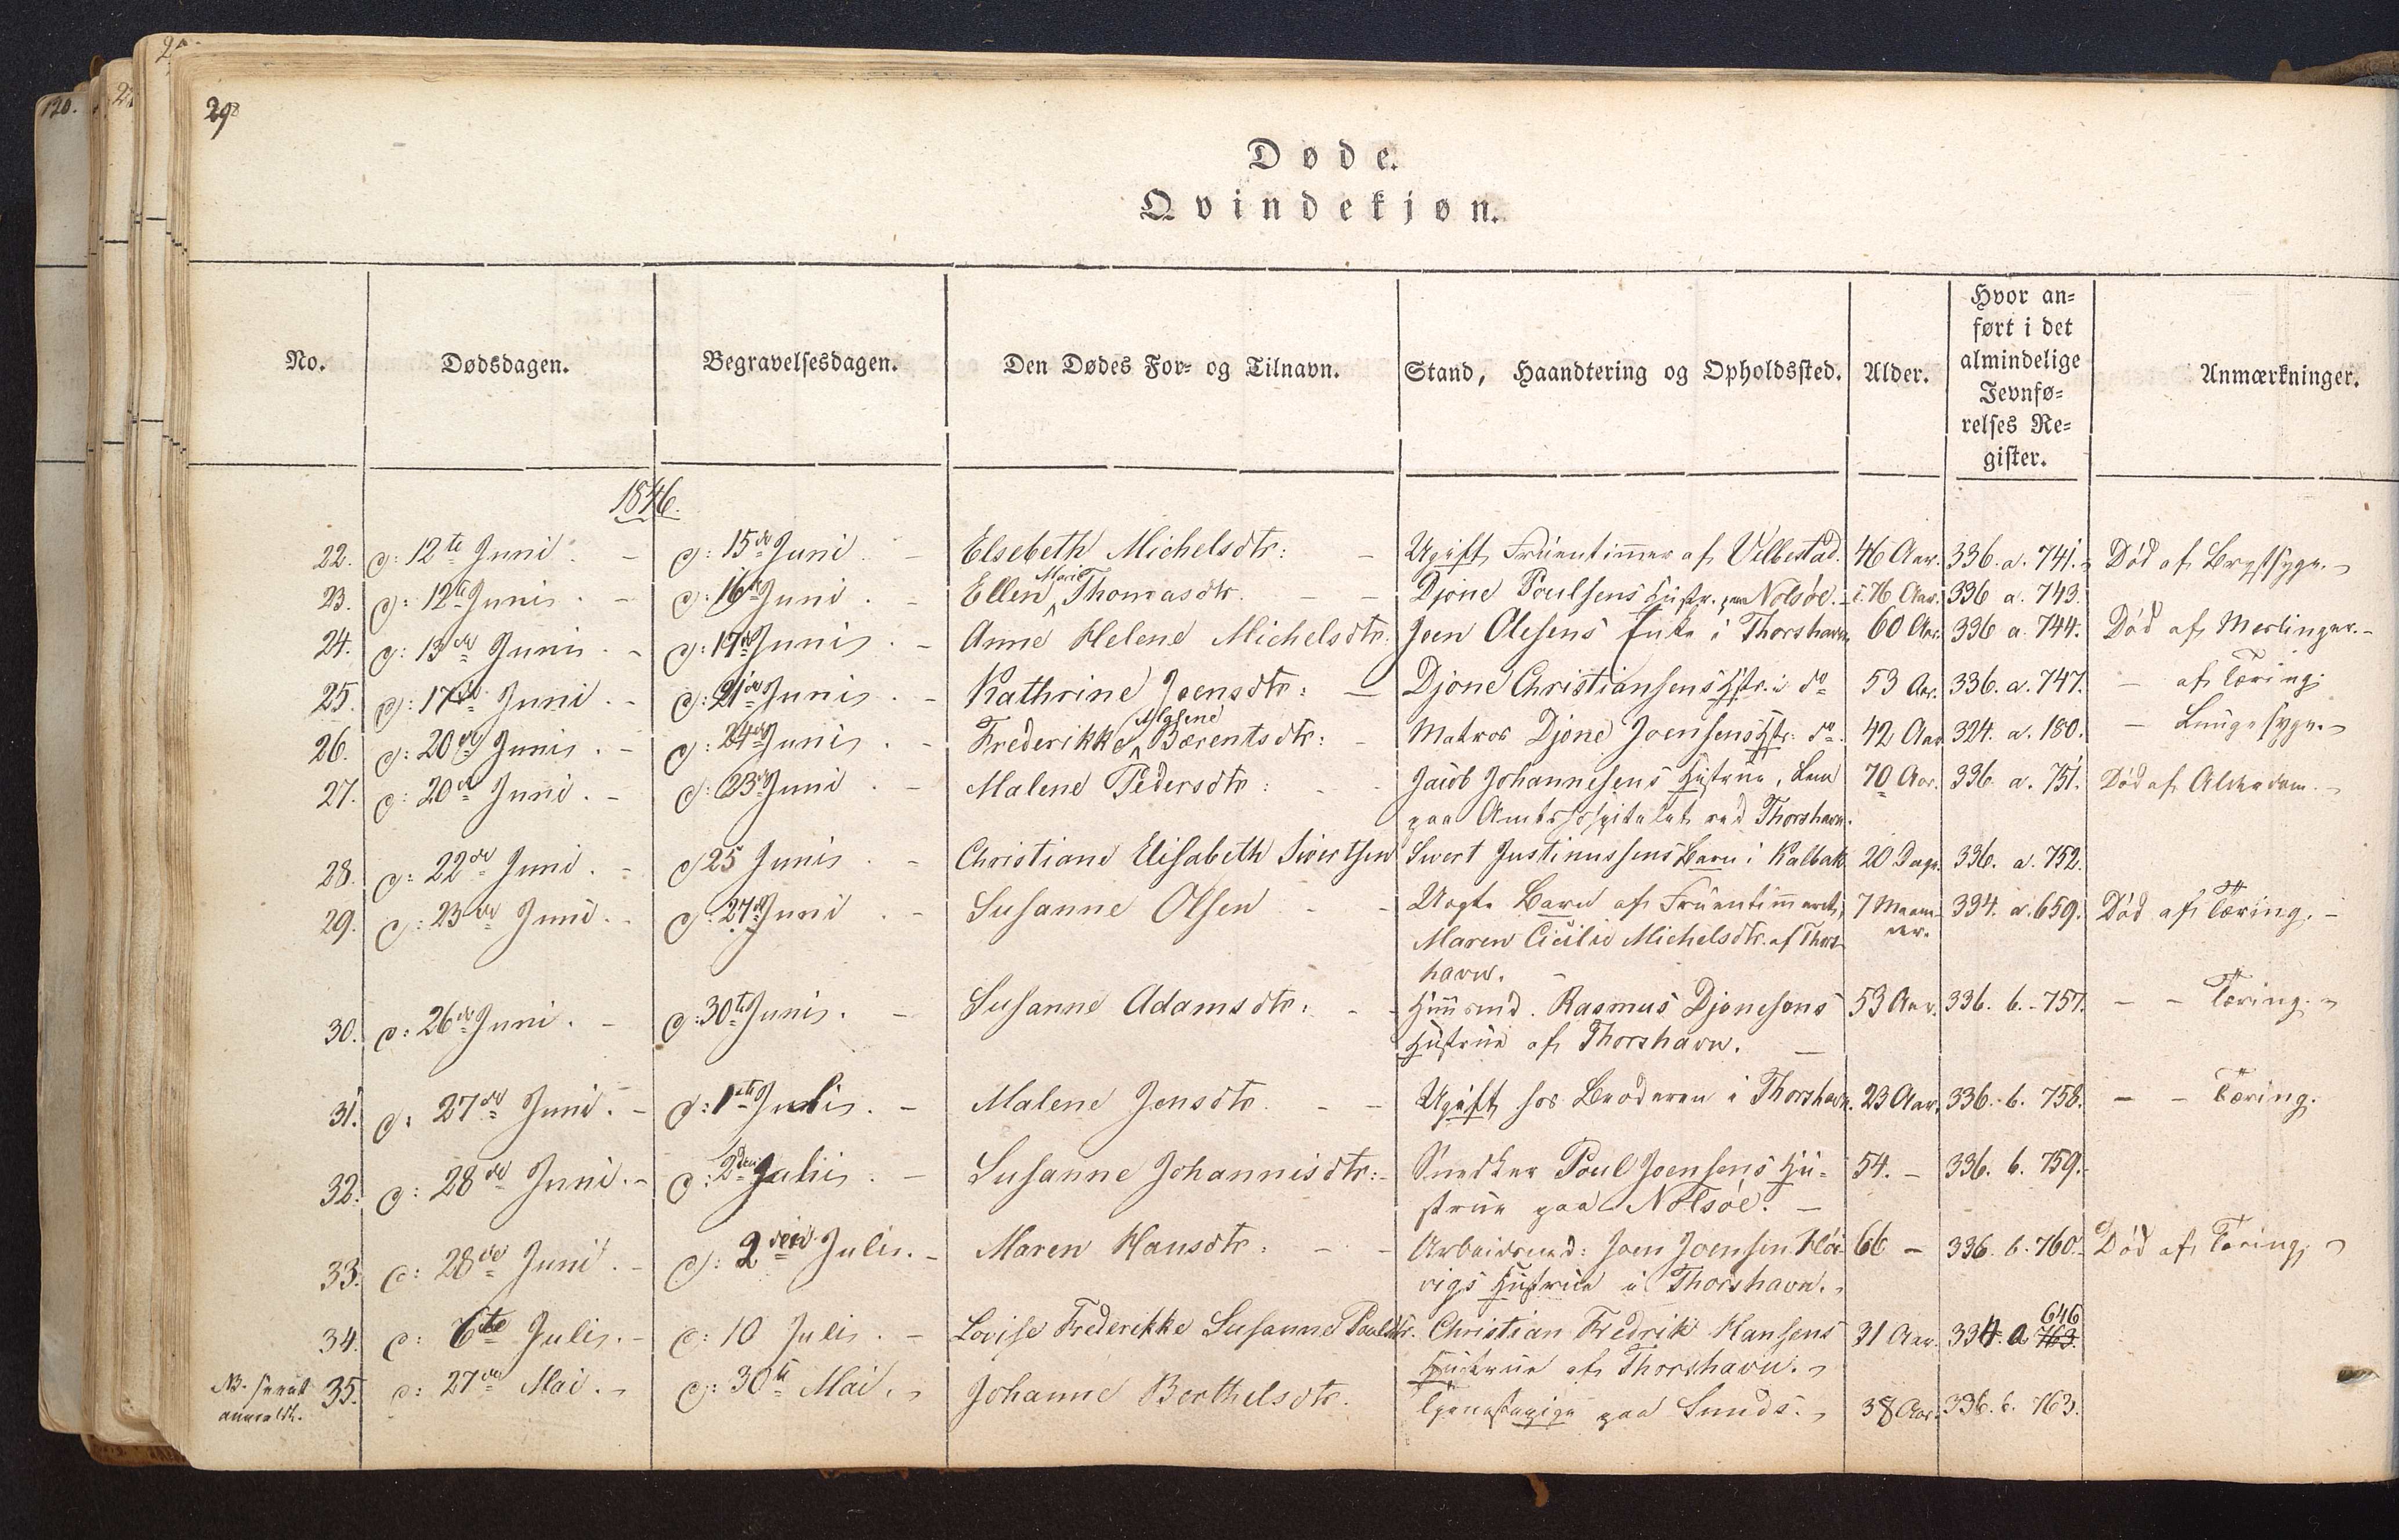 298
Døde.
Qvindekjøn.
No.
Dødsdagen.
Begravelsesdagen.
Den Dødes For- og Tilnavn.
Stand, Haandtering og Opholdssted.
Alder.
Hvor an-
ført i det
almindelige
Jevnfø-
relses Re-
gister.
Anmærkninger.
1846.
22. d: 12te Juni. - d: 15de Juni - Elsebeth Michelsdtr: - Ugift Fruentimmer af Velbestad. 46 Aar. 336. a. 741. Død af Brystsyge.
23. d: 12te Juni. - d: 16de Juni. - Ellen Marie Thomasdtr. - - Djone Poulsens Hustr. paa Nolsöe. - i 76 Aar. 336 a. 743.
24. d: 13de Juni. - d: 17de Juni. - Anne Helene Michelsdtr. Joen Olesens Enke i Thorshavn 60 Aar. 336 a. 744. Død af Meslinger. -
25. d: 17de Juni. - d: 21de Juni. - Kathrine Joensdtr: - Djone Christiansens Hstr. i do 53 Aar. 336. a. 747. - af Tæring.
26. d: 20de Juni. - d: 24de Juni. - Frederikke Malene Bærentsdtr: - Matros Djone Joensens Hstr: do. 42 Aar 324. a. 180. - Lungesyge.
27. d: 20de Juni. - d: 23de Juni. - Malene Pedersdtr: - - Jacob Johannesens Hustrue, Lem 70 Aar. 336 a. 751. Død af Alderdom.
paa Amtshospitalet ved Thorshavn.
28. d: 22de Juni. - d 25 Juni. - Christiane Elisabeth Sivertsen Sivert Justinussens Barn i Kalbak 20 Dage. 336. a. 752.
29. d: 23de Juni. - d: 27de Juni. - Susanne Olsen - - Uægte Barn af Fruentimmeret 7 Maane- 334. a. 659. Død af Tæring. -
Maren Cicilie Michelsdtr. af Thors- der.
havn.
30. d: 26de Juni. - d: 30te Juni. - Susanne Adamsdtr: - - Huusmd. Rasmus Djonesens 53 Aar. 336. b. - 757. - - Tæring.
Hustrue af Thorshavn. -
31. d: 27de Juni. - d: 1ste Juli. - Malene Jensdtr. - - Ugift hos Broderen i Thorshavn. 23 Aar. 336. b. 758. - - Tæring.
32. d: 28de Juni. - d: 2den Juli. - Susanne Johannisdtr: - Snedker Poul Joensens Hu- 54. - 336. b. 759.
strue paa Nolsöe. -
33. d: 28de Juni. - d: 2den Juli. - Maren Hansdtr: - - Arbeidsmd: Joen Joensen Kla- 66 - 336. b. 760. Død af Tæring.
vigs Hustrue i Thorshavn.
646
34. d: 6te Juli. - d: 10 Juli. - Lovise Frederikke Susanne Poulsdtr. Christian Fredrik Hansens 31 Aar. 334. a 763.
Hustrue af Thorshavn.
NB. seent 35. d: 27de Mai. d: 30te Mai. Johanne Berthelsdtr. Tjenestepige paa Sunds. 38 Aar. 336. b. 763.
anmeldt.